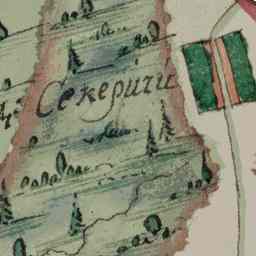 Секеричи